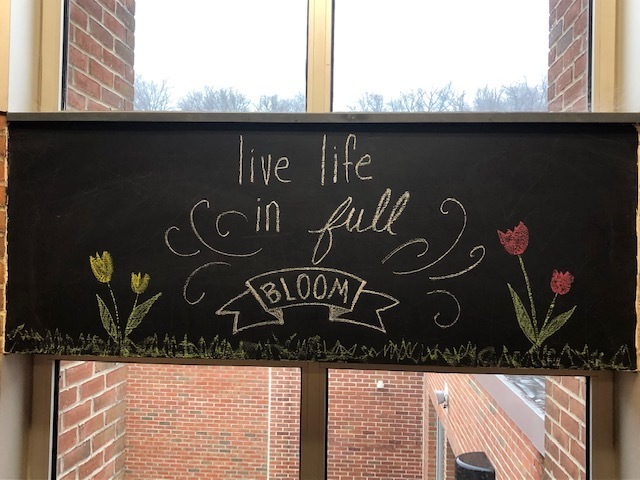 live life
in full
BLOOM